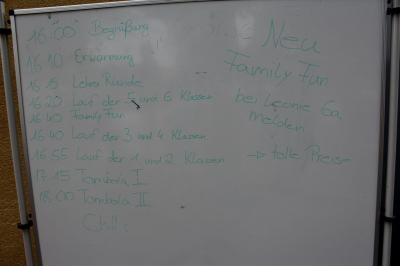 16:00 Begrüßung
16:10 Erwärmung
16:15 Lehrer Runde
16:20 Lauf der 5 und 6 Klassen
16:40 Family Fun
16:40 Lauf der 3 und 4 Klassen
16:55 Lauf der 1 und 2 Klassen
17:15 Tombola I
18:00 Tombola II
Neu
Family Fun
bei Leonie 6a
melden
→ tolle Preise